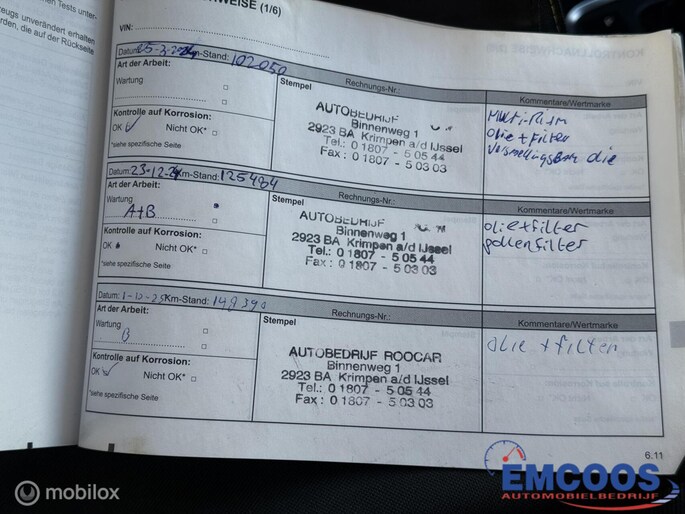 en Tests unter-
zeugs unverändert erhalten
rden, die auf der Rückseite
WEISE (1/6)
VIN:
Datum: 25-3-24 Km-Stand: 102050
Art der Arbeit:
Stempel
Rechnungs-Nr.:
Kommentare/Wertmarke
Wartung
Kontrolle auf Korrosion:
OK Nicht OK*
*siehe spezifische Seite
AUTOBEDRIJF
Binnenweg 1
2923 BA Krimpen a/d IJssel
Tel.: 0 1807 - 5 05 44
Fax : 0 1807 - 5 03 03
Multi-Riem
Olie + Filter
olie
Datum: 23-12-24 Km-Stand: 125484
Art der Arbeit:
Stempel
Rechnungs-Nr.:
Kommentare/Wertmarke
Wartung
A+B
Kontrolle auf Korrosion:
OK Nicht OK*
*siehe spezifische Seite
AUTOBEDRIJF
Binnenweg 1
2923 BA Krimpen a/d IJssel
Tel.: 0 1807 - 5 05 44
Fax : 0 1807 - 5 03 03
olie+filter
pollenfilter
Datum: 1-10-25 Km-Stand: 148390
Art der Arbeit:
Stempel
Rechnungs-Nr.:
Kommentare/Wertmarke
Wartung
B
Kontrolle auf Korrosion:
OK Nicht OK*
*siehe spezifische Seite
AUTOBEDRIJF ROOCAR
Binnenweg 1
2923 BA Krimpen a/d IJssel
Tel.: 0 1807 - 5 05 44
Fax : 0 1807 - 5 03 03
olie + filter
6.11
EMCOOS
AUTOMOBIELBEDRIJF
mobilox